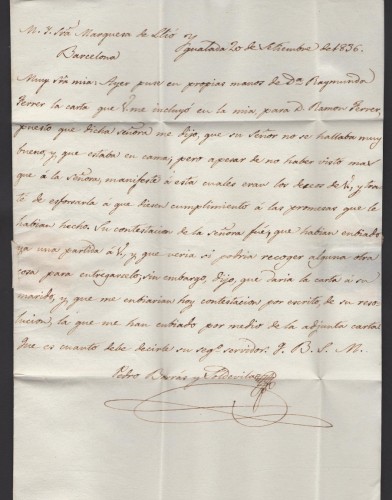 M. Y. Sra. Marquesa de Llió y
Barcelona
Igualada 20 de Setiembre de 1836.
Muy Sra mia: Ayer puse en propias manos de Da. Raymunda
Ferrer la carta que V. me incluyó en la mia, para D. Ramon Ferrer,
puesto que dicha señora me dijo, que su Señor no se hallaba muy
bueno, y que estaba en cama; pero apesar de no haber visto mas
que á la Señora, manifesté á esta cuales eran los deseos de V., y tra-
té de esforzarla á que diesen cumplimiento á las promesas que le
habian hecho. Su contestacion de la señora fué, que habian enbiado
ya una partida á V., y que veria si podria recoger alguna otra
cosa para entregarselo; sin embargo, dijo, que daria la carta á su
marido, y, que me enbiarian hoy contestacion por escrito, de su reso-
lucion, la que me han enbiado por medio de la adjunta carta.
Que es cuanto debe decirle su segro. servidor Q. B. S. M.
Pedro Borrás y